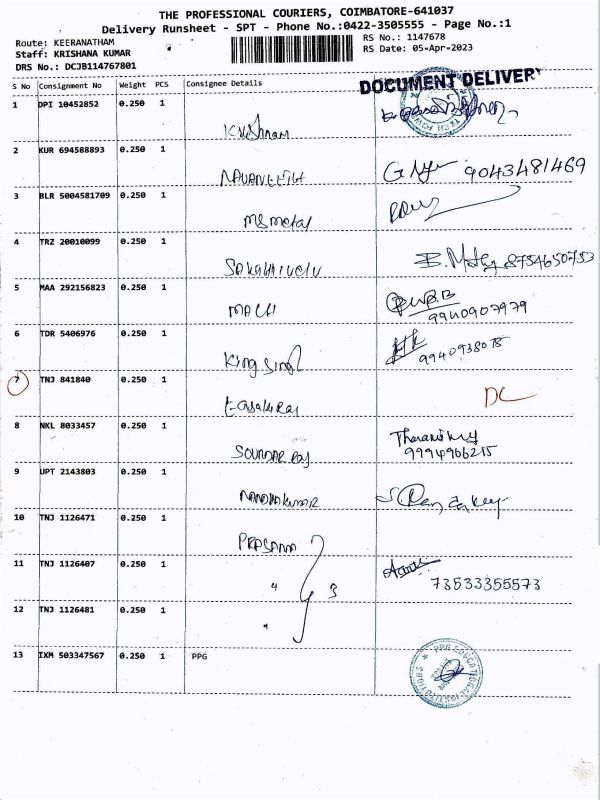 THE PROFESSIONAL COURIERS, COIMBATORE-641037
Delivery Runsheet - SPT - Phone No.:0422-3505555 - Page No.:1
Route: KEERANATHAM
RS No.: 1147678
Staff: KRISHANA KUMAR
RS Date: 05-Apr-2023
DRS No.: DCJB114767801
S No Consignment No Weight PCS Consignee Details
DOCUMENT DELIVERY
1 DPI 10452852 0.250 1
Krishnan
2 KUR 694588893 0.250 1
NAVANEETH 9043481469
3 BLR 5004581709 0.250 1
MS metal
4 TRZ 20010099 0.250 1
SAKTHIVELU 8754650753
5 MAA 292156823 0.250 1
MALLI 9940907979
6 TDR 5406976 0.250 1
King Singh 9940938078
7 TNJ 841840 0.250 1
DC
8 NKL 8033457 0.250 1
SOUNDAR Raj 9994966215
9 UPT 2143803 0.250 1
NANDHAKUMAR
10 TNJ 1126471 0.250 1
PRASANA
11 TNJ 1126407 0.250 1
" 3 73533355573
12 TNJ 1126481 0.250 1
"
13 IXM 503347567 0.250 1 PPG
PPG EDUCATIONAL INSTITUTIONS